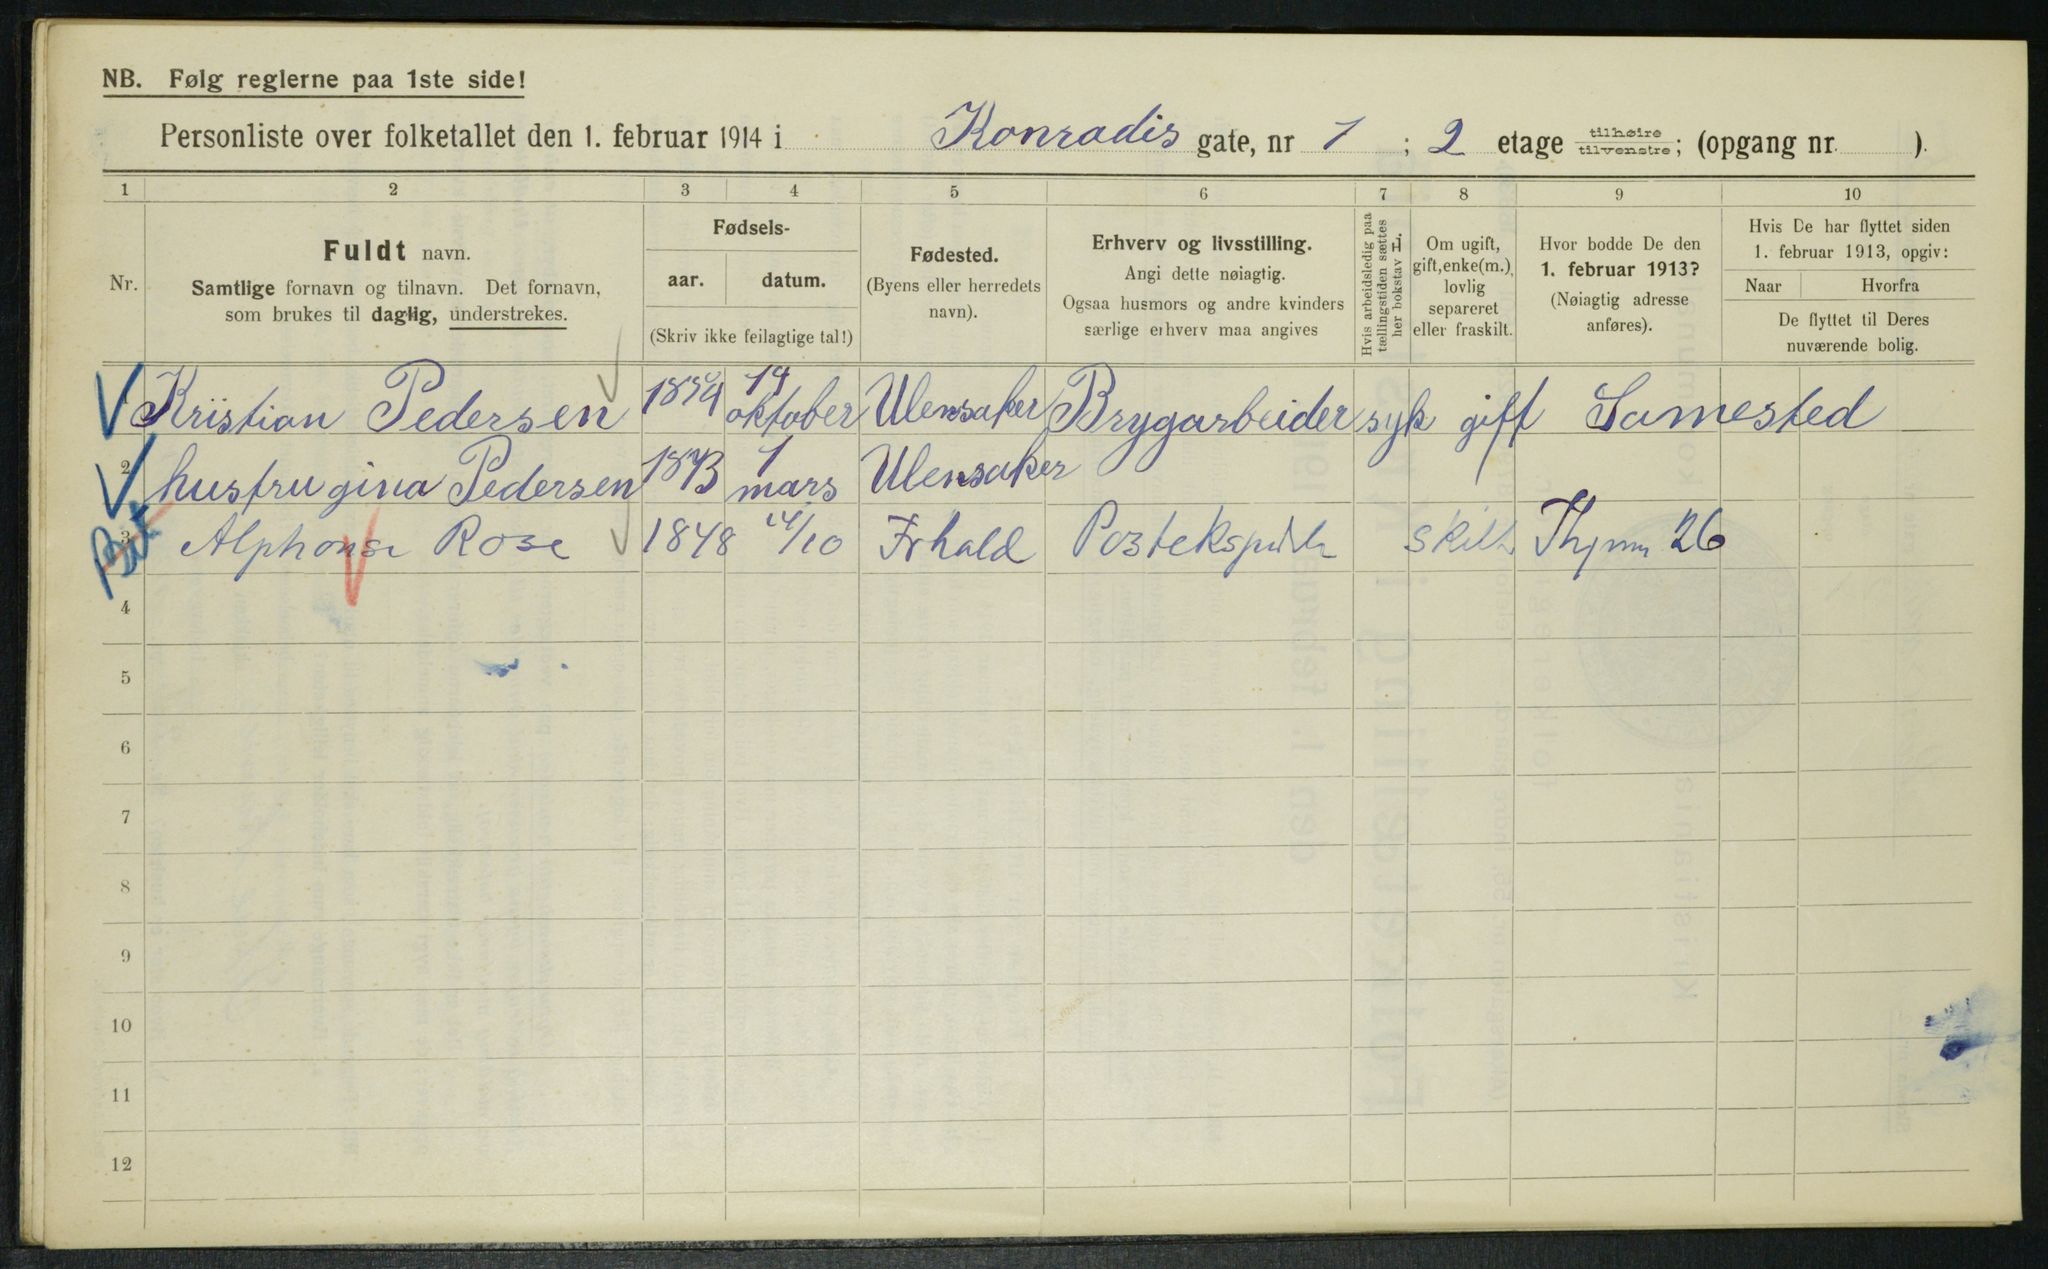 NB. Følg reglerne paa 1ste side!
Personliste over folketallet den 1. februar 1914 i Konradis gate, nr 1 ; 2 etage tilhøire tilvenstre; (opgang nr. ).
1 2 3 4 5 6 7 8 9 10
Nr.
Fuldt navn.
Samtlige fornavn og tilnavn. Det fornavn,
som brukes til daglig, understrekes.
Fødsels-
aar. datum.
(Skriv ikke feilagtige tal!)
Fødested.
(Byens eller herredets
navn).
Erhverv og livsstilling.
Angi dette nøiagtig.
Ogsaa husmors og andre kvinders
særlige erhverv maa angives
Hvis arbeidsledig paa
tællingstiden sættes
her bokstav L.
Om ugift,
gift, enke(m.),
lovlig
separeret
eller fraskilt.
Hvor bodde De den
1. februar 1913?
(Nøiagtig adresse
anføres).
Hvis De har flyttet siden
1. februar 1913, opgiv:
Naar Hvorfra
De flyttet til Deres
nuværende bolig.
Kristian Pedersen 19 oktober Ulensaker Brygarbeider syk gift Samested
2 hustru gina Pedersen 1873 1 mars Ulensaker
3 Alphonse Rose 1848 14/10 Frhald skilt 26
4
5
6
7
8
9
10
11
12